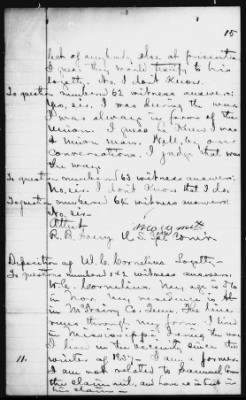 15
heck of anybody else at present
I guess they would testify to his
loyalty. No. I don't know.
To question numbered 62 witness answers:
Yes, sir. I was during the war
I was always in favor of the
Union. I guess he knew I was
a Union man. Well, by our
conversations. I judge that was
the way.
To question numbered 63 witness answers:
No, sir. I don't know that I do.
To question numbered 64 witness answers:
No, sir.
Attest
R. B. U. S. Spl. Comr.
Deposition of W. C. Cornelius Loyalty—
To questions numbered 1 & 2 witness answers:
W. C. Cornelius. My age is 56
in Nov. My residence is
in McNairy Co. Tenn. The line
runs through my farm. I live
in Mississippi. I
I live in the vicinity since the
winter of 1857— I am a farmer
11. I am not related to
the claimant, and have no interest in
his claim—